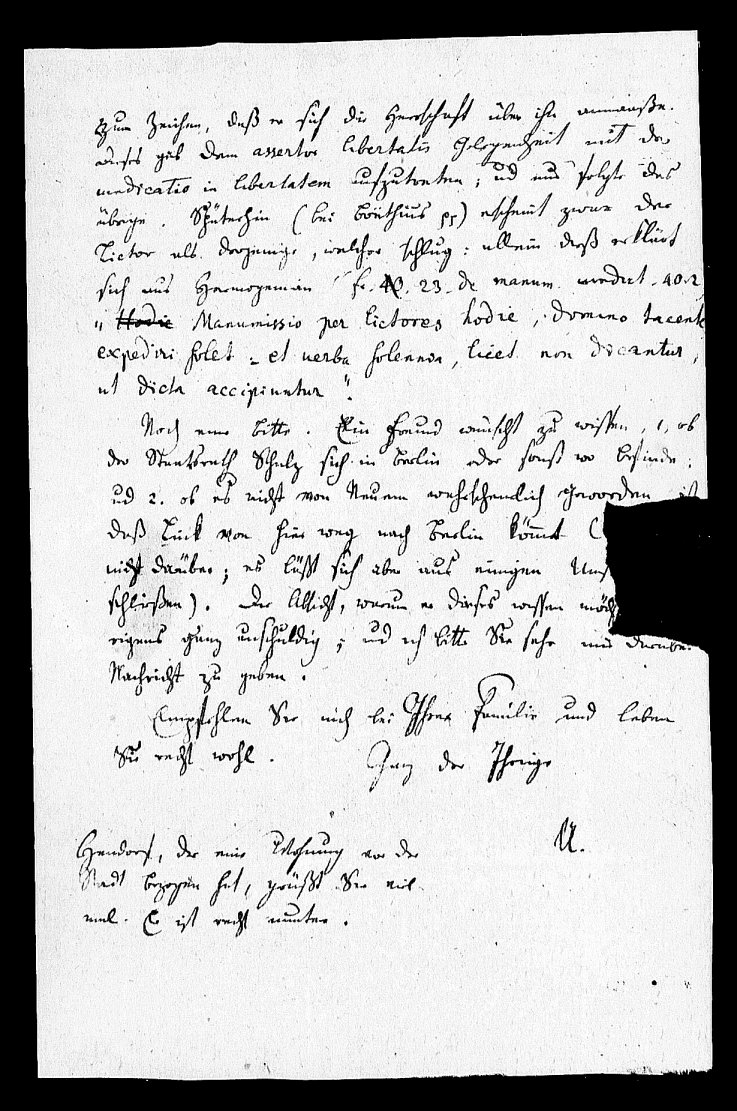 zum Zeichen, daß er sich die Herrschaft über ihn anmaaße.
dieses gab dem assertor libertatis Gelegenheit mit der
in libertatem aufzutreten; und nun folgte das
übrige. Späterhin (bei Boëthius pr) erscheint zwar der
Lictor als derjenige, welcher schlug: allein dieß erklärt
sich aus Hermogenian fr. 23. de manum. vindict. 40.2,
"Hodie Manumissio per lictores hodie, domino tacente
expediri solet - et verba solennia, licet non dicantur,
ut dicta accipiuntur".
Noch eine Bitte. Ein Freund wünscht zu wissen, 1, ob
der Staatsrath Schulz sich in Berlin oder sonst wo befinde;
und 2. ob es nicht von Neuem wahrscheinlich geworden ist
daß Lück von hier weg nach Berlin kömmt (
nicht darüber; es läßt sich aber aus einigen Ums
schließen). Die Absicht, warum er dieses wissen möch
rigens ganz unschuldig; und ich bitte Sie sehr mir darüber
Nachricht zu geben.
Empfehlen Sie mich bei Ihrer Familie und leben
Sie recht wohl. Ganz der Ihrige
U.
Heindorf, der eine Wohnung vor der
Stadt bezogen hat, grüßt Sie viel-
mal. Er ist recht munter.